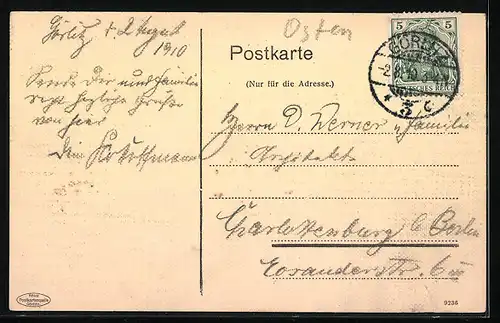 Görlitz d. 2 August
1910
Sende Dir und Familie
recht herzliche Grüße
von hier
Dein
Osten
Postkarte
(Nur für die Adresse.)
5 5
GÖRLITZ
DEUTSCHES REICH
* 2 c
Herrn D. Werner u Familie
Architekt
Charlottenburg b. Berlin
Eosanderstr. 6
9236